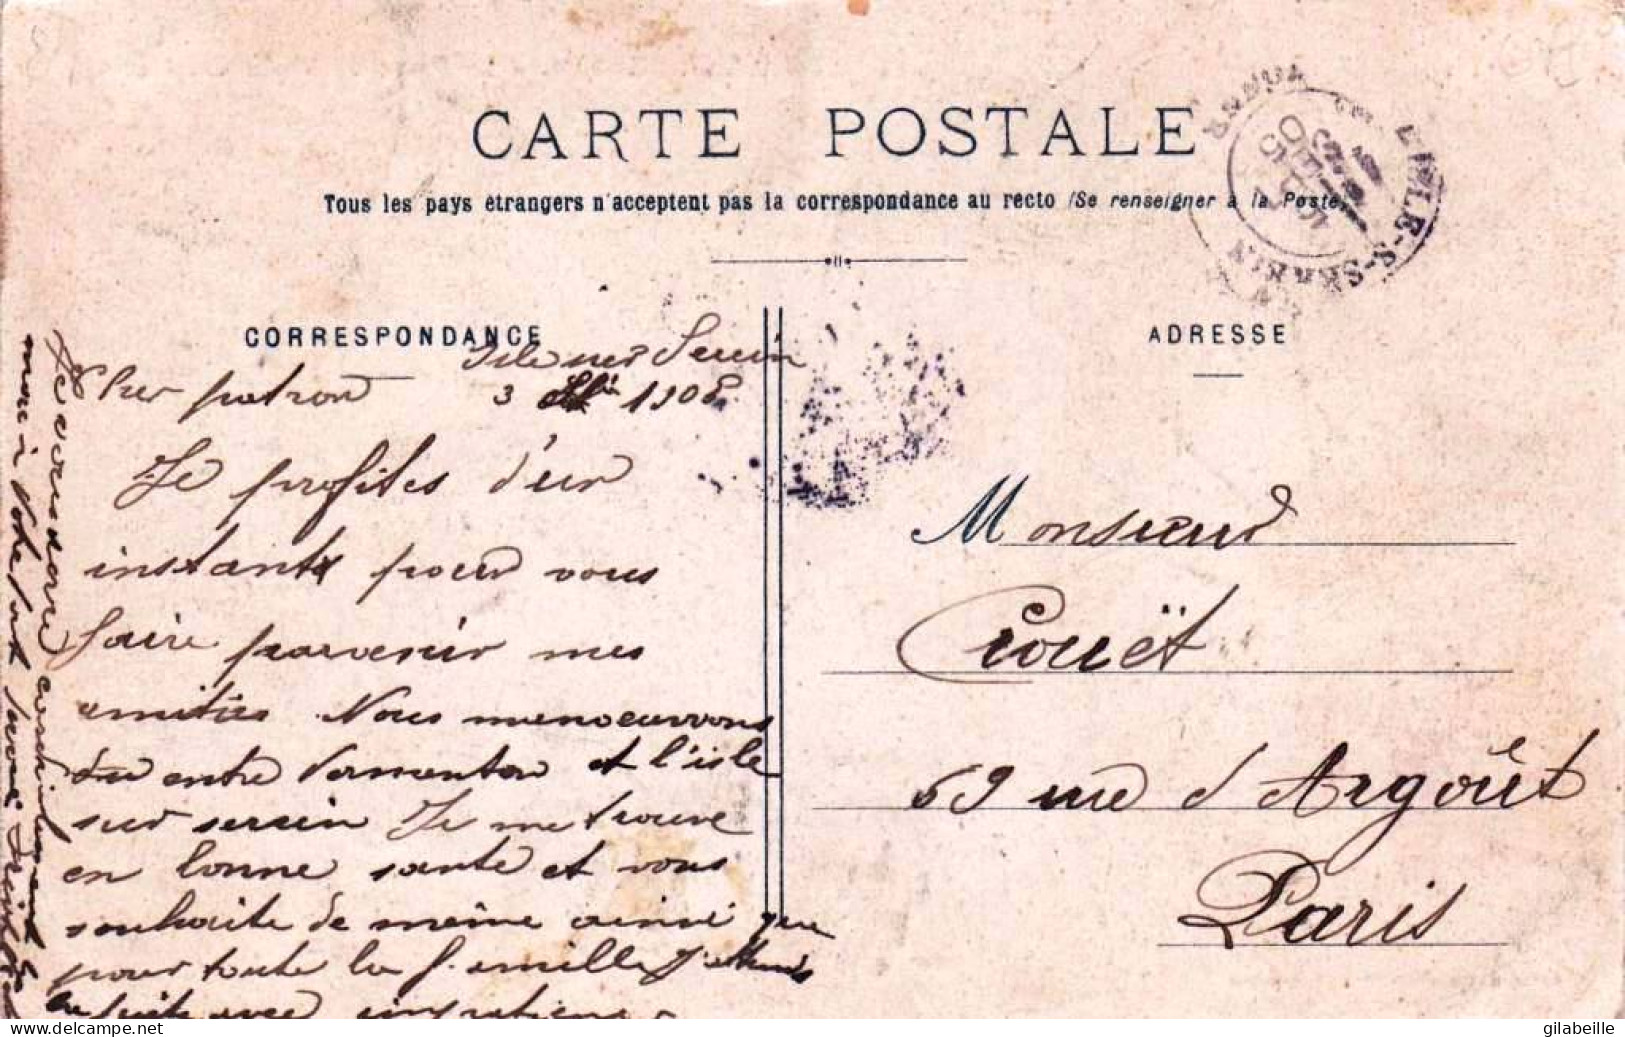 CARTE POSTALE
Tous les pays étrangers n'acceptent pas la correspondance au recto (Se renseigner à la Poste)
L'ISLE-S-SEREIN
CORRESPONDANCE
ADRESSE
Isle sur Serein
Cher patron
3 1908
Je profites d'un
instants pour vous
faire parvenir mes
amitiés Nous manoeuvrons
entre Vermenton et l'isle
sur serein Je me trouve
en bonne santé et vous
souhaite de même ainsi que
pour toute la famille J'attends
la suite avec
Je vous donne cordialement la
main à votre
Monsieur
Crouët
69 rue d'Argoût
Paris
www.delcampe.net
gilabeille